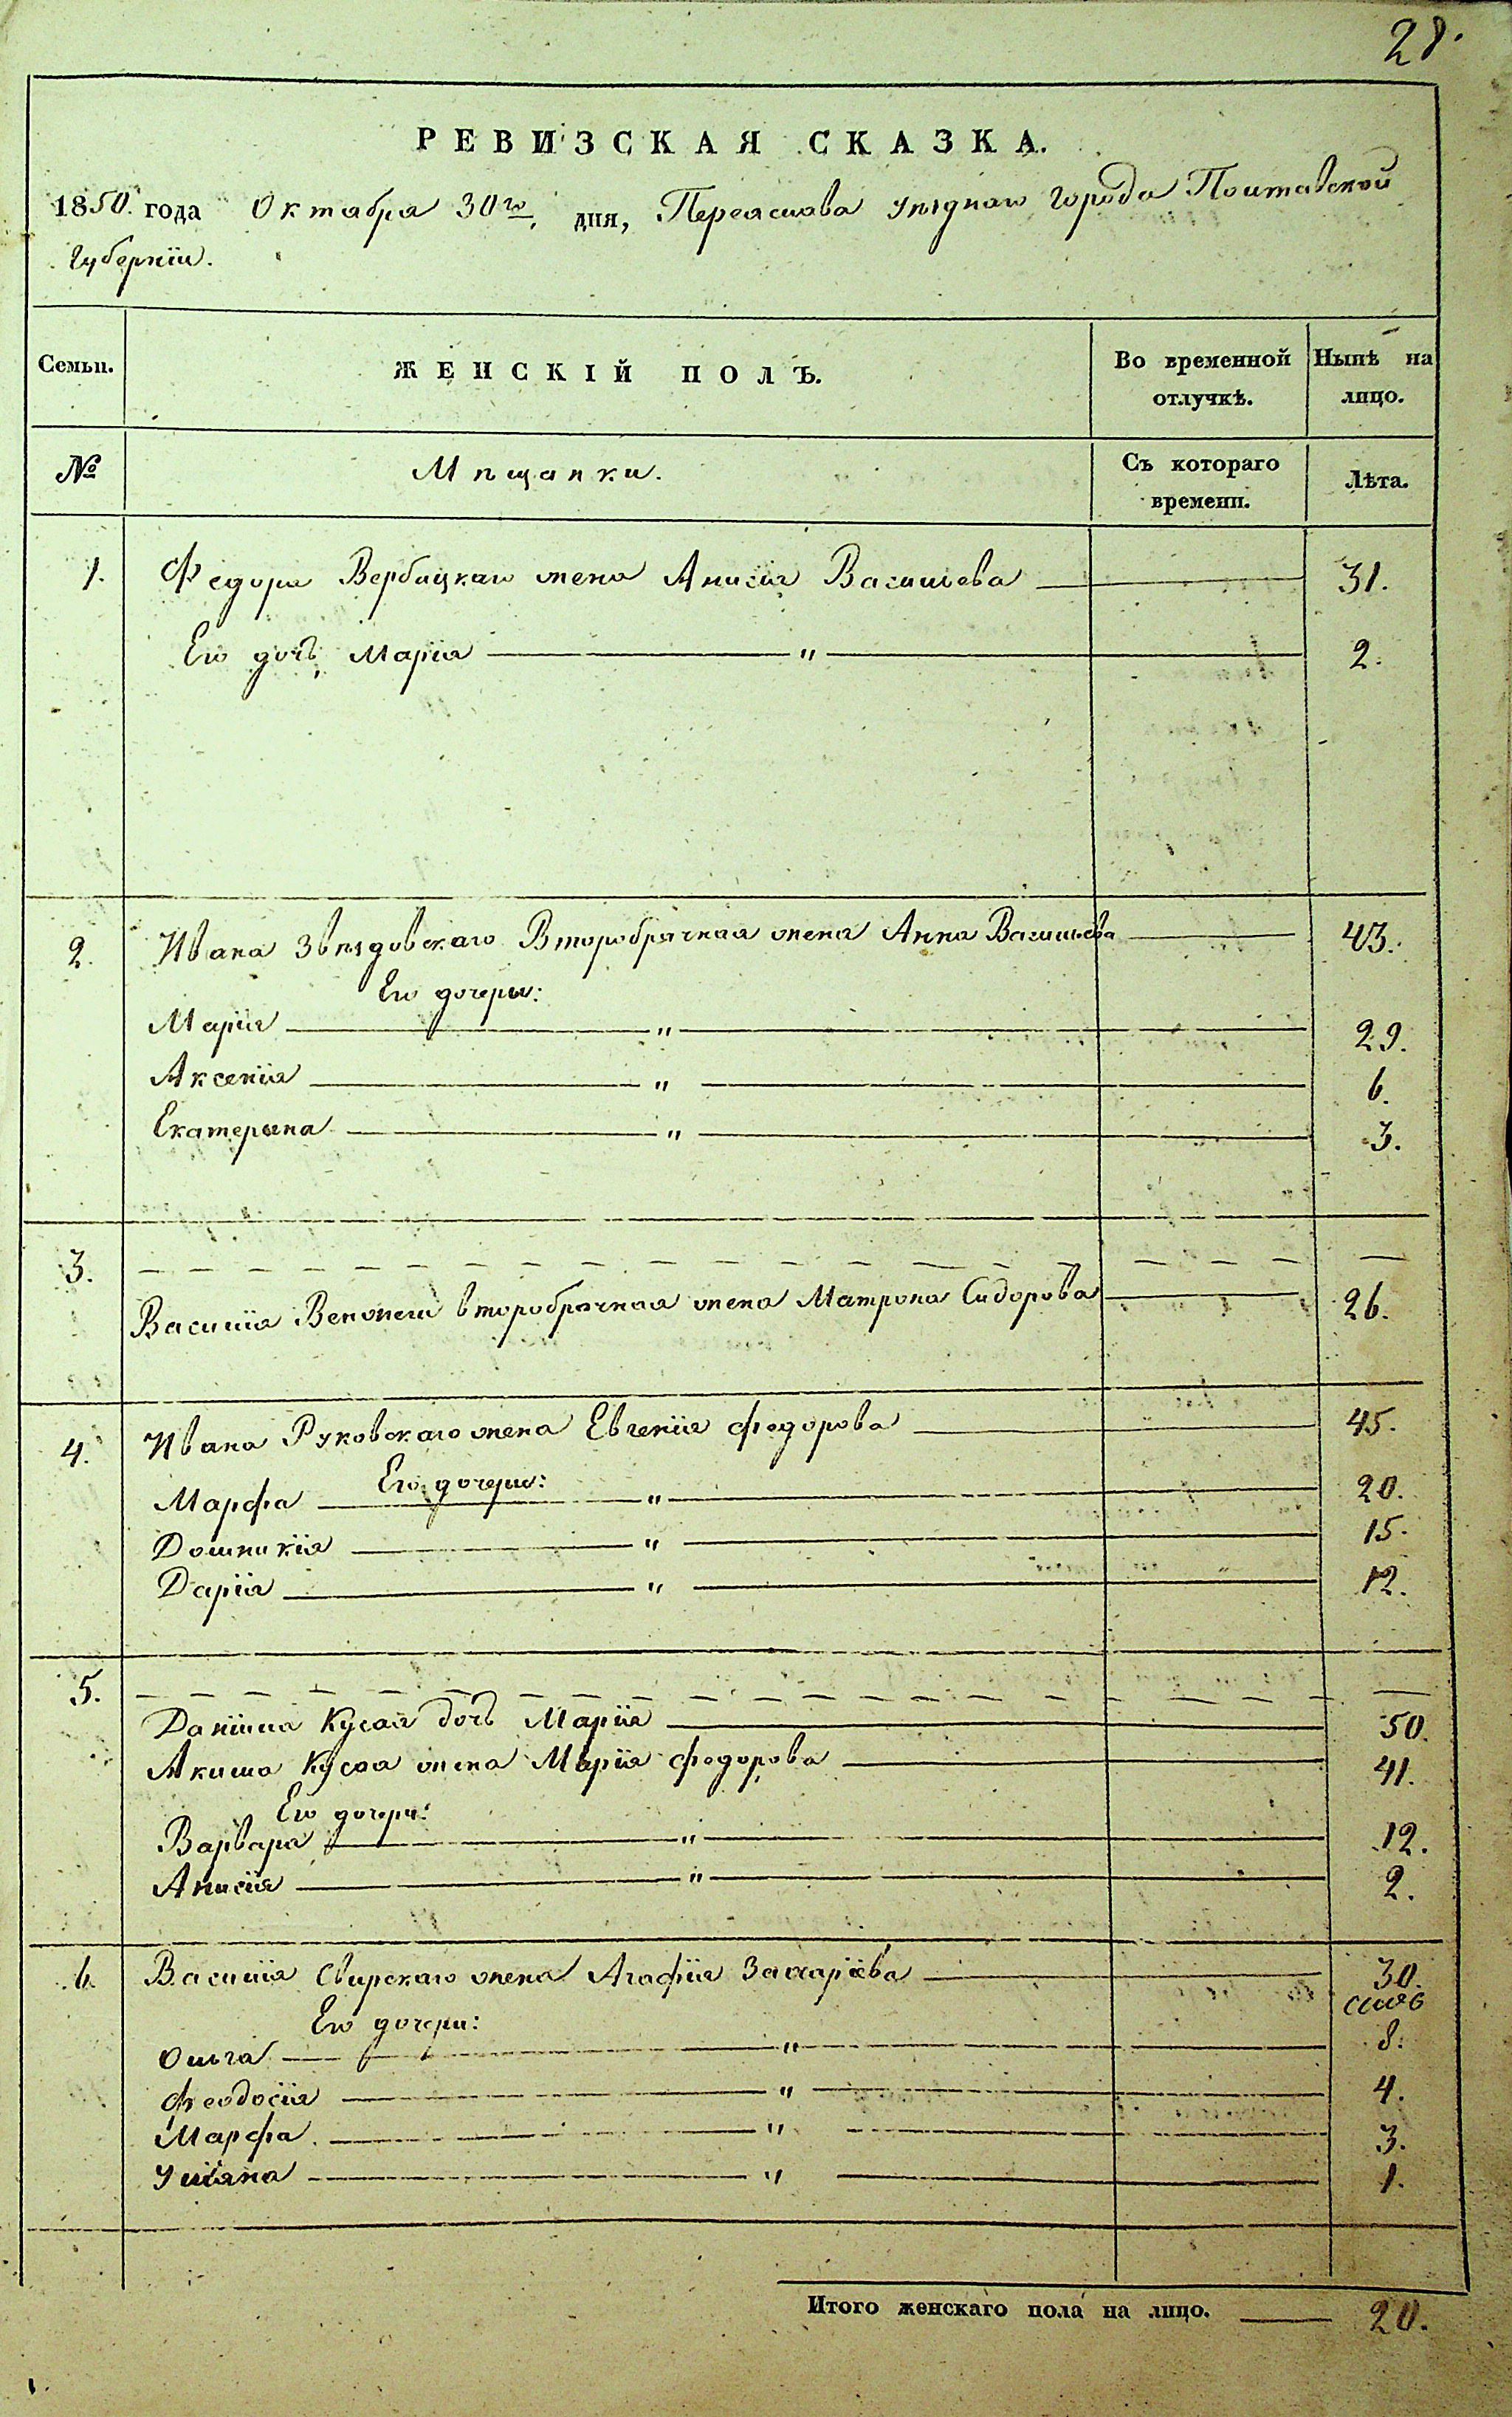 28.
РЕВИЗСКАЯ СКАЗКА.
1850. года Октября 30го. дня, Переяслава уѣзднаго города Полтавской
губерніи.
Семьи. ЖЕНСКІЙ ПОЛЪ. Во временной отлучкѣ. Нынѣ на лицо.
№ Мѣщанки. Съ котораго времени. Лѣта.
1. Федора Вербицкаго жена Анисія Васильева 31.
Его дочь Марія " 2.
2. Ивана Звѣздовскаго Второбрачная жена Анна Васильева 43.
Его дочеры:
Марія " 29.
Аксенія " 6.
Екатерына " 3.
3.
Василія второбрачная жена Матрона Сидорова 26.
4. Ивана Руковскаго жена Евгенія Федорова 45.
Его дочеры:
Марфа " 20.
Домникія " 15.
Дарія " 12.
5.
Даніила Кусая дочь Марія 50.
Акима Кусая жена Марія Федорова 41.
Его дочери:
Варвара " 12.
Анисія " 2.
6. Василія Свирскаго жена Агафія Захаріева 30.
Его дочери:
Ольга " 8.
Феодосія " 4.
Марфа " 3.
Уліяна " 1.
Итого женскаго пола на лицо. 20.